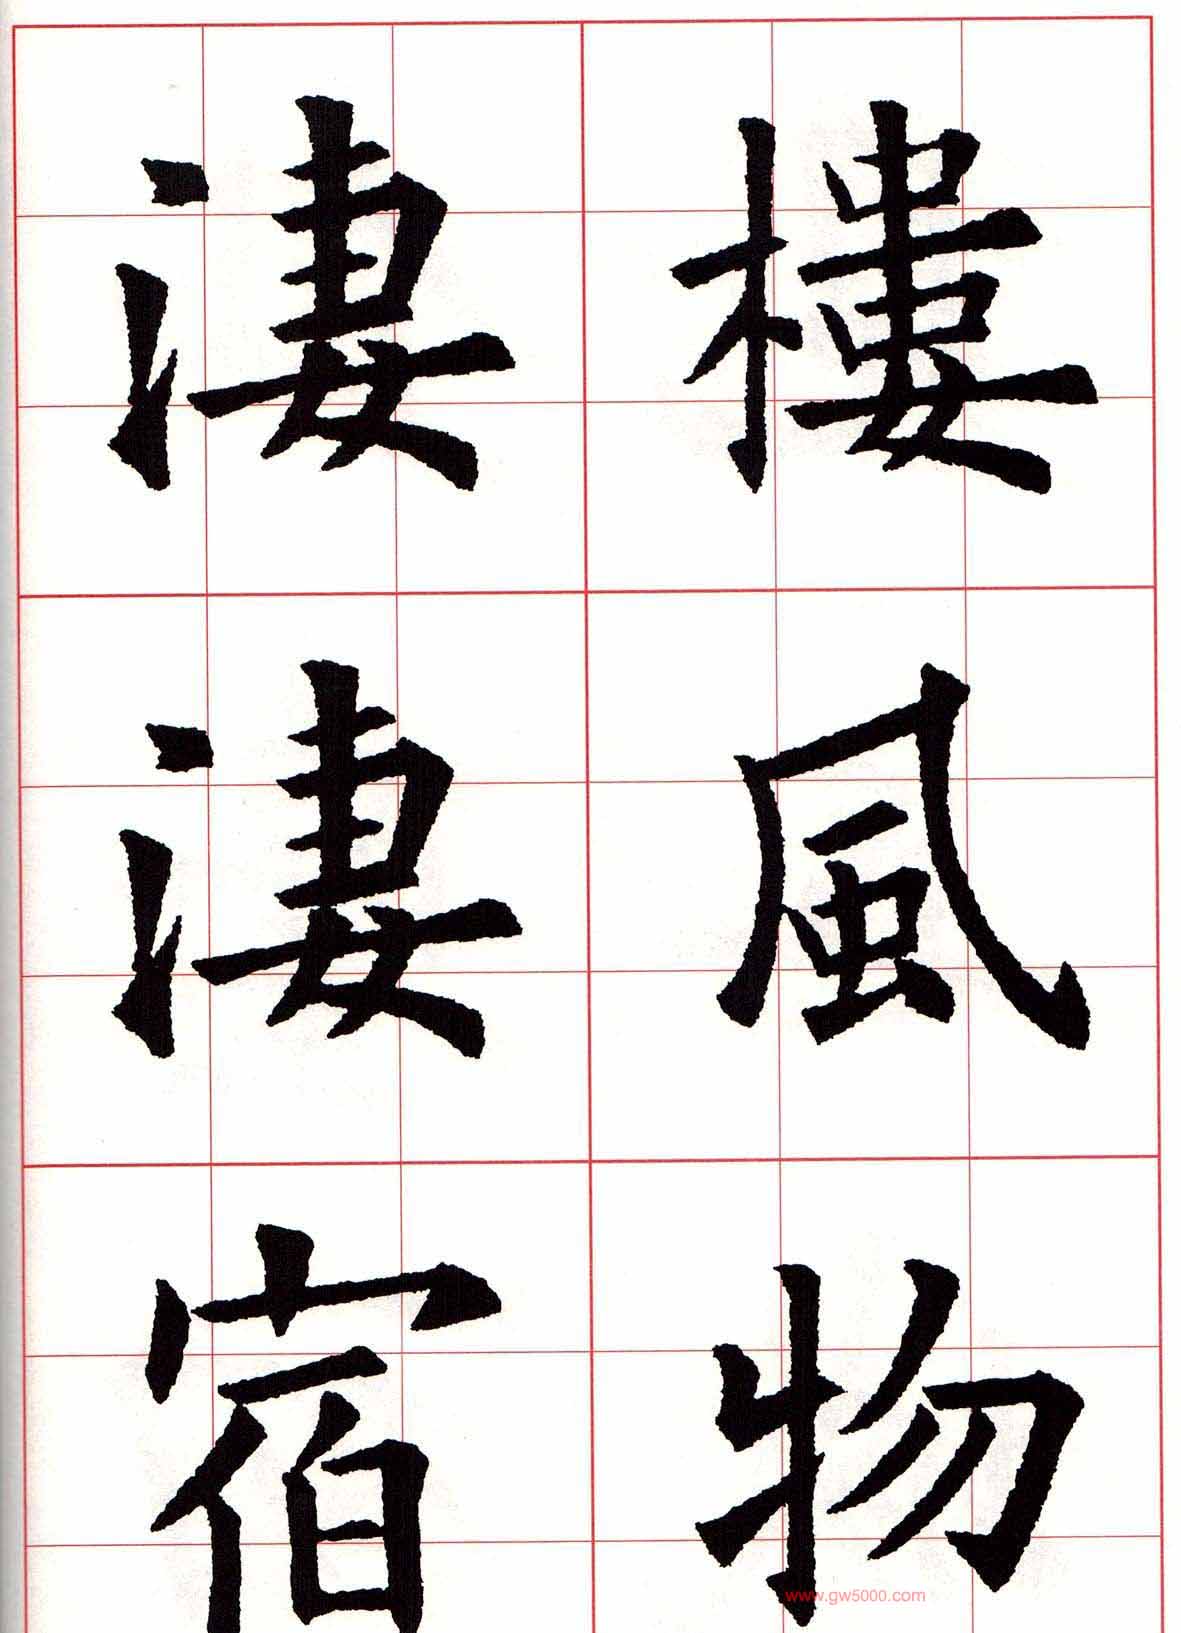 樓風物
淒淒宿
www.gw5000.com